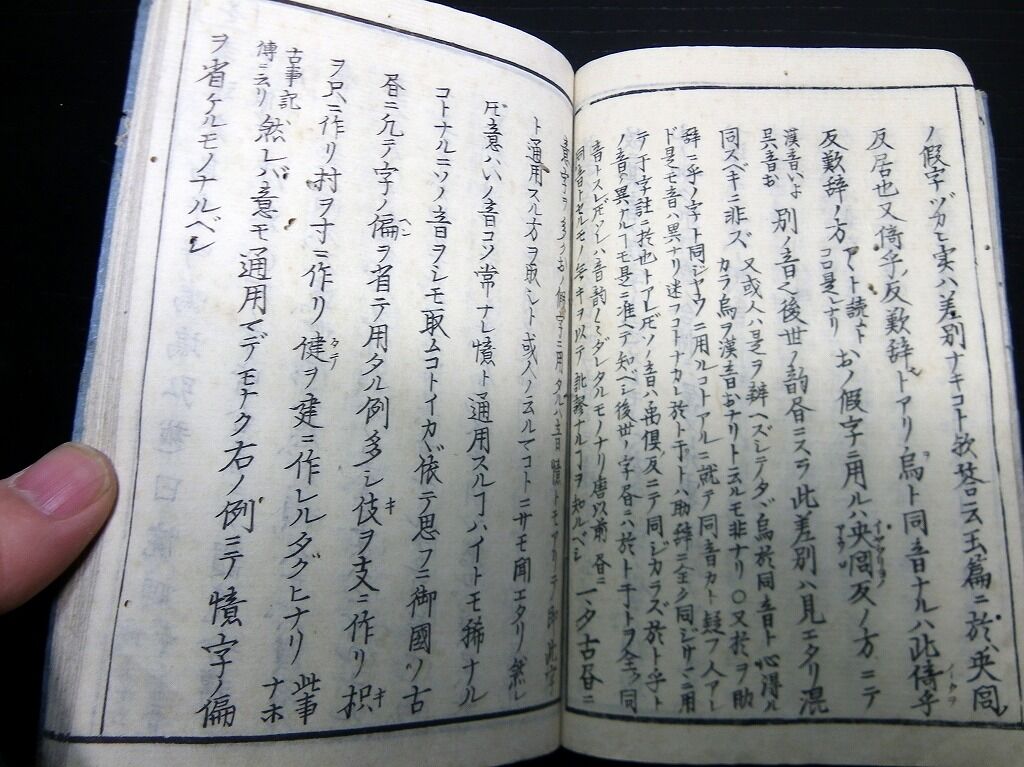 ノ假字ヅカヒ実ハ差別ナキコト欤荅ニ云玉篇ニ於ハ央閭
反居也又倚乎ノ反歎辞トアリ烏ト同音ナルハ此倚乎
反歎辞ノ方
アヽト読ムトコロ是ナリ
おノ假字ニ用ルハ央閭反ノ方ニテ
漢音いよ
呉音お
別ノ音也後世ノ韵書ニスラ此差別ハ見エタリ混
同スベキニ非ズ
又或人ハ是ラ辨ヘズシテタダ烏於同音ト心得ル
カラ烏ヲ漢音おナリト云ルモ非ナリ〇又於ヲ助
辞ニ乎ノ字ト同ジヤウニ用ルコトアルニ就テ同音カト疑フ人アレ
ド是モ音ハ異ナリ迷フコトナカレ於ト于トハ助辞ニ全ク同シサマニ用
テ于字註ニ於也トアレ𪜈ソノ音ハ禹倶ノ反ニテ同ジカラズ於ト乎ト
ノ音ノ異ナルヿモ是ニ准ヘテ知ベシ後世ノ字書ニハ於ト于トヲ全ク同
音トスレ𪜈ソレハ音韵ノミダレタルモノナリ唐以前ノ書ニ
同音トセルモノ無キヲ以テ訛謬ナルヿヲ知ルベシ
一タ古書ニ
意字ヲ多クおノ假字ニ用タルハ
ト通用スル方ヲ取シト或人ノ云ルマコトニサモ聞エタリ然レ
𪜈意ハいノ音コソ常ナレ憶ト通用スルヿハイトモ稀ナル
コトナルニソノ音ヲシモ取ムコトイカヾ依テ思フニ御國ノ古
書ニ凡テ字ノ偏ヲ省テ用タル例多シ伎ヲ支ニ作リ枳
ヲ只ニ作リ村ヲ寸ニ作リ健ヲ建ニ作レルタグヒナリ
此事ナホ
古事記
傳ニ云リ
然レバ意モ通用マデモナク右ノ例ニテ憶字ノ偏
ヲ省ケルモノナルベシ